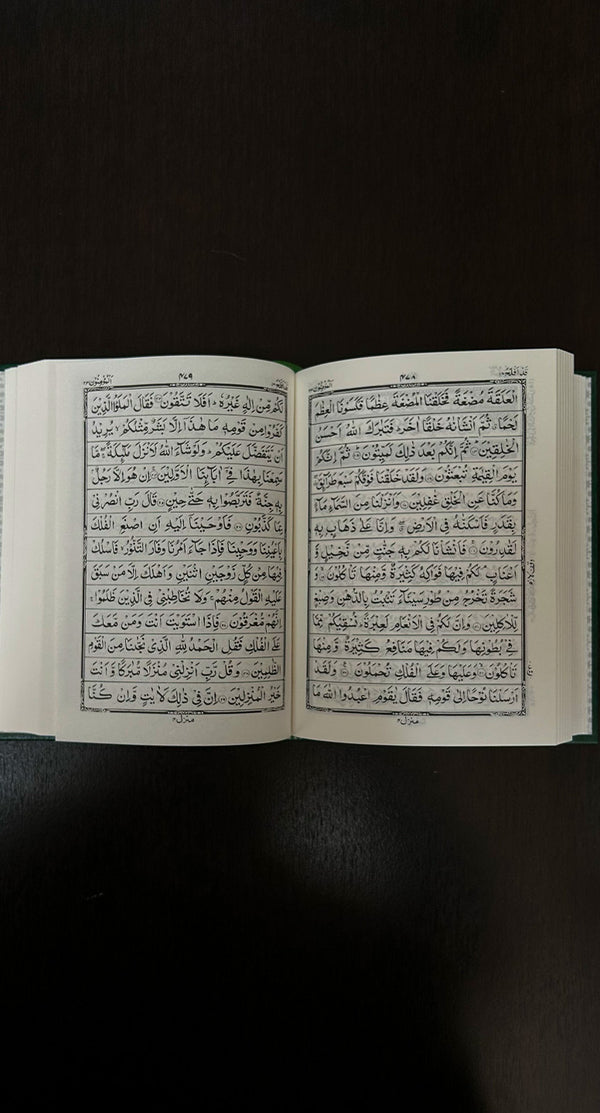 قد افلح ١٨
٤٧٨
المؤمنون ٢٣
الْعَلَقَةَ مُضْغَةً فَخَلَقْنَا الْمُضْغَةَ عِظٰمًا فَكَسَوْنَا الْعِظٰمَ
لَحْمًا ثُمَّ اَنْشَاْنٰهُ خَلْقًا اٰخَرَ فَتَبٰرَكَ اللّٰهُ اَحْسَنُ
الْخٰلِقِيْنَ ثُمَّ اِنَّكُمْ بَعْدَ ذٰلِكَ لَمَيِّتُوْنَ ثُمَّ اِنَّكُمْ
يَوْمَ الْقِيٰمَةِ تُبْعَثُوْنَ وَلَقَدْ خَلَقْنَا فَوْقَكُمْ سَبْعَ طَرَآئِقَ
وَمَا كُنَّا عَنِ الْخَلْقِ غٰفِلِيْنَ وَاَنْزَلْنَا مِنَ السَّمَآءِ مَآءً
بِقَدَرٍ فَاَسْكَنّٰهُ فِي الْاَرْضِ وَاِنَّا عَلٰى ذَهَابٍ بِهٖ
لَقٰدِرُوْنَ فَاَنْشَاْنَا لَكُمْ بِهٖ جَنّٰتٍ مِّنْ نَّخِيْلٍ وَّ
اَعْنَابٍ لَكُمْ فِيْهَا فَوَاكِهُ كَثِيْرَةٌ وَّمِنْهَا تَاْكُلُوْنَ وَ
شَجَرَةً تَخْرُجُ مِنْ طُوْرِ سَيْنَآءَ تَنْبُتُ بِالدُّهْنِ وَصِبْغٍ
لِّلْاٰكِلِيْنَ وَاِنَّ لَكُمْ فِي الْاَنْعَامِ لَعِبْرَةً نُسْقِيْكُمْ مِّمَّا
فِيْ بُطُوْنِهَا وَلَكُمْ فِيْهَا مَنَافِعُ كَثِيْرَةٌ وَّمِنْهَا
تَاْكُلُوْنَ وَعَلَيْهَا وَعَلَى الْفُلْكِ تُحْمَلُوْنَ وَلَقَدْ
اَرْسَلْنَا نُوْحًا اِلٰى قَوْمِهٖ فَقَالَ يٰقَوْمِ اعْبُدُوا اللّٰهَ مَا
منزل ٤
٤٧٩
المؤمنون ٢٣
لَكُمْ مِّنْ اِلٰهٍ غَيْرُهٗ اَفَلَا تَتَّقُوْنَ فَقَالَ الْمَلَؤُا الَّذِيْنَ
كَفَرُوْا مِنْ قَوْمِهٖ مَا هٰذَا اِلَّا بَشَرٌ مِّثْلُكُمْ يُرِيْدُ
اَنْ يَّتَفَضَّلَ عَلَيْكُمْ وَلَوْ شَآءَ اللّٰهُ لَاَنْزَلَ مَلٰٓئِكَةً مَّا
سَمِعْنَا بِهٰذَا فِيْٓ اٰبَآئِنَا الْاَوَّلِيْنَ اِنْ هُوَ اِلَّا رَجُلٌۢ
بِهٖ جِنَّةٌ فَتَرَبَّصُوْا بِهٖ حَتّٰى حِيْنٍ قَالَ رَبِّ انْصُرْنِيْ
بِمَا كَذَّبُوْنِ فَاَوْحَيْنَآ اِلَيْهِ اَنِ اصْنَعِ الْفُلْكَ
بِاَعْيُنِنَا وَوَحْيِنَا فَاِذَا جَآءَ اَمْرُنَا وَفَارَ التَّنُّوْرُ فَاسْلُكْ
فِيْهَا مِنْ كُلٍّ زَوْجَيْنِ اثْنَيْنِ وَاَهْلَكَ اِلَّا مَنْ سَبَقَ
عَلَيْهِ الْقَوْلُ مِنْهُمْ وَلَا تُخَاطِبْنِيْ فِي الَّذِيْنَ ظَلَمُوْا
اِنَّهُمْ مُّغْرَقُوْنَ فَاِذَا اسْتَوَيْتَ اَنْتَ وَمَنْ مَّعَكَ
عَلَى الْفُلْكِ فَقُلِ الْحَمْدُ لِلّٰهِ الَّذِيْ نَجّٰىنَا مِنَ الْقَوْمِ
الظّٰلِمِيْنَ وَقُلْ رَّبِّ اَنْزِلْنِيْ مُنْزَلًا مُّبٰرَكًا وَّاَنْتَ
خَيْرُ الْمُنْزِلِيْنَ اِنَّ فِيْ ذٰلِكَ لَاٰيٰتٍ وَّاِنْ كُنَّا
منزل ٤